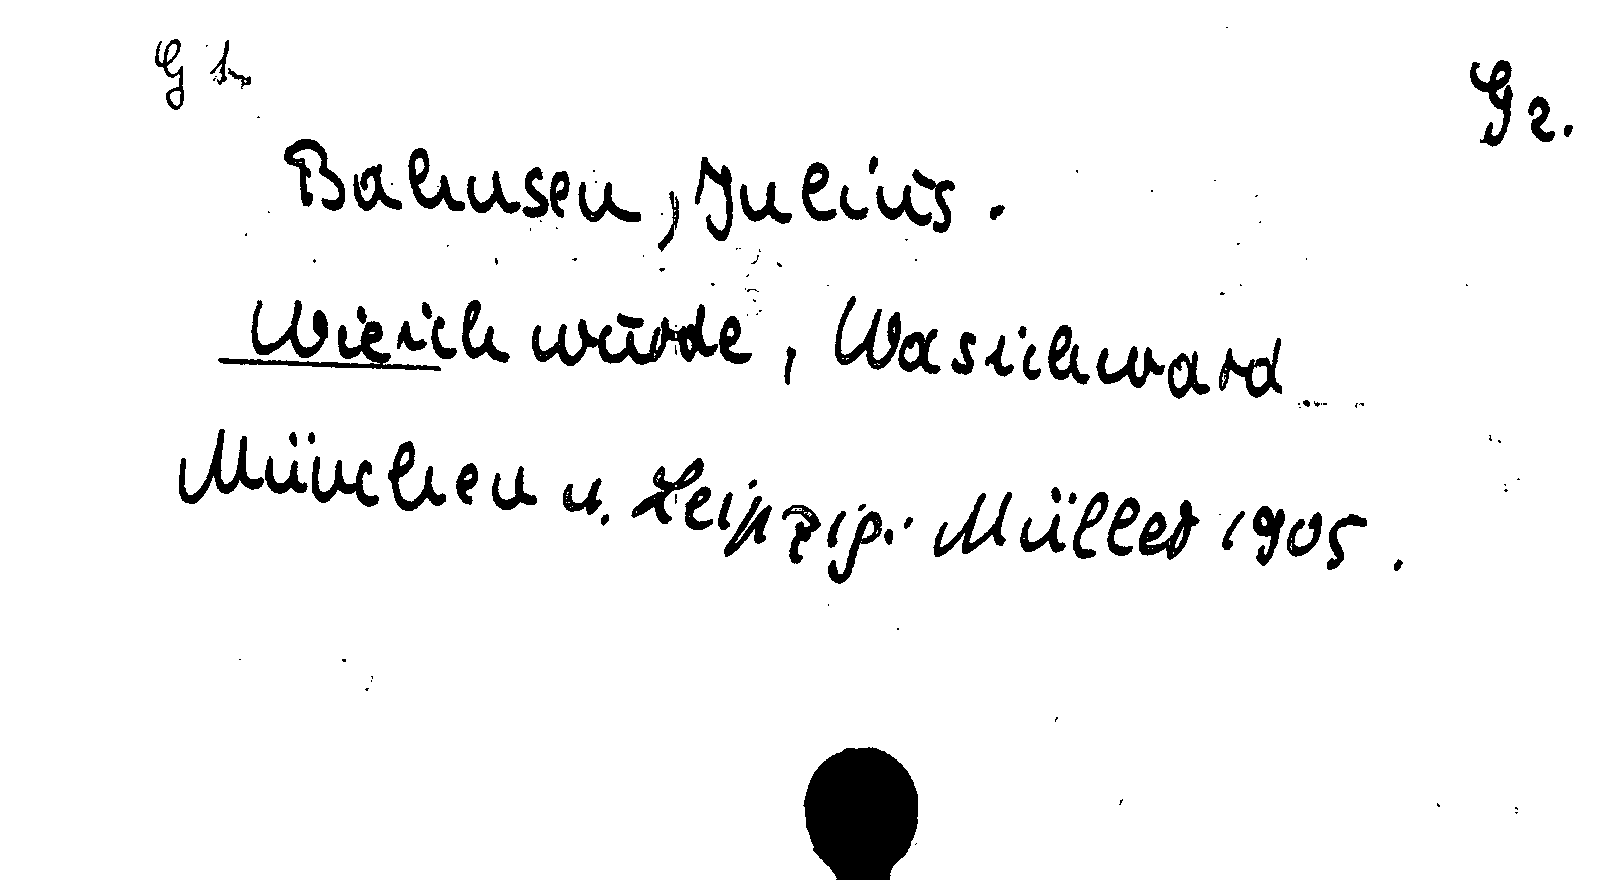 G 1.
G 2.
Bahnsen, Julius.
Wie ich wurde, Was ich ward
München u. Leipzig: Müller 1905.